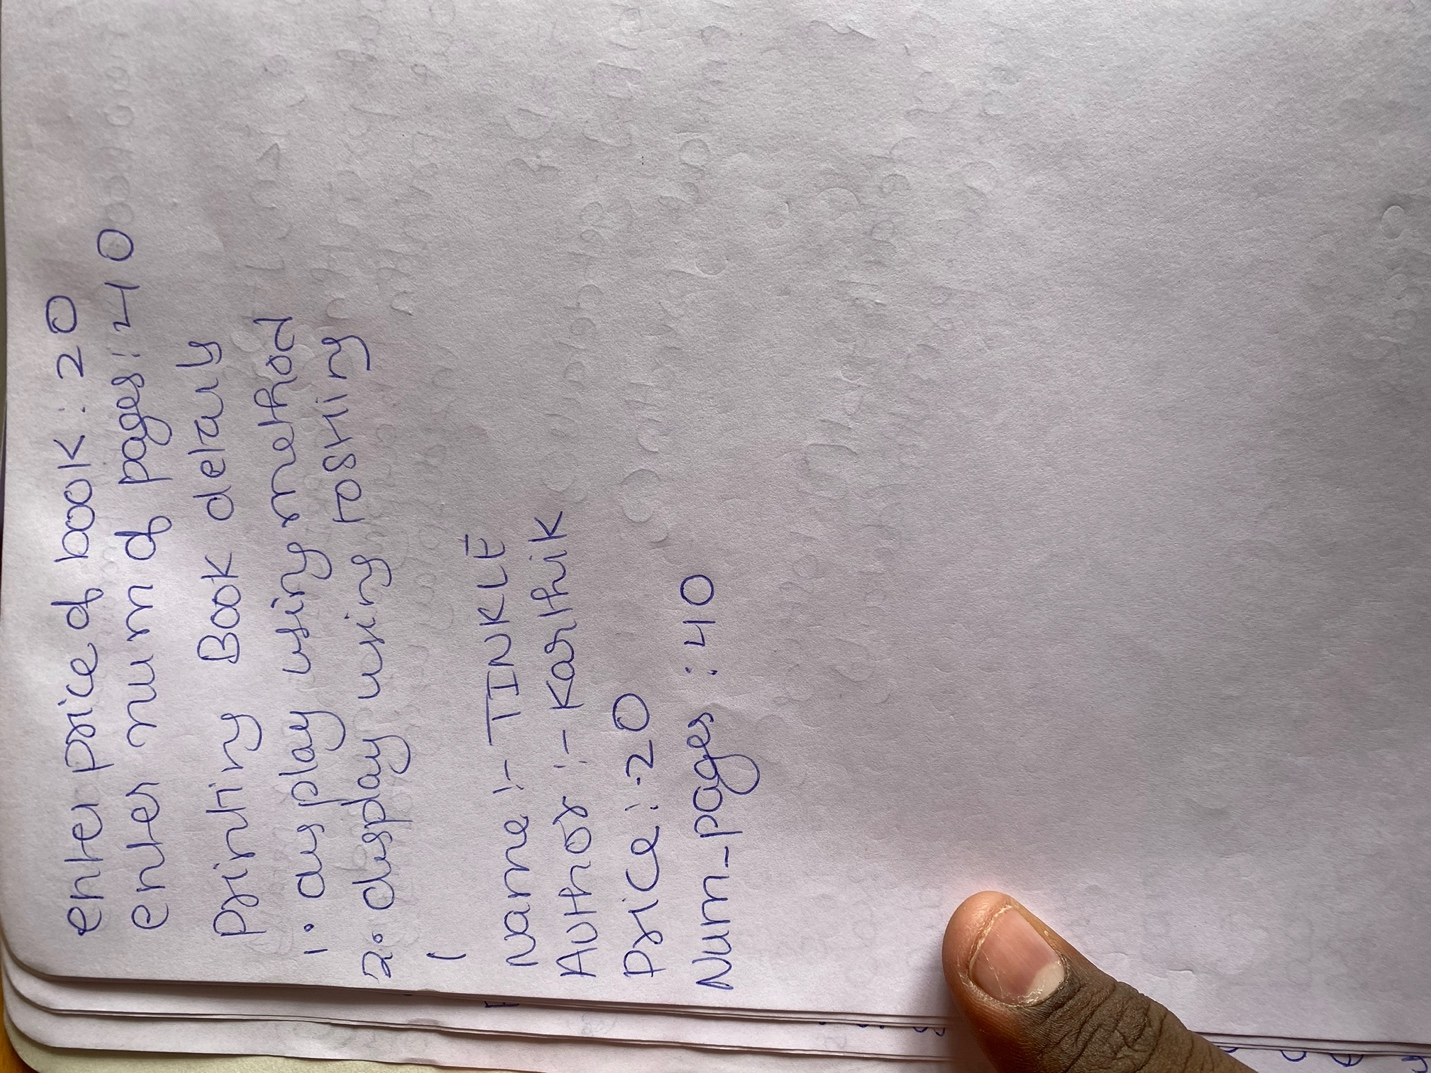 enter price of book: 20
enter num of pages: 40
Printing Book details
1. display using method
2. display using toString
1
Name :- TINKLE
Author :- Karthik
Price :- 20
Num_pages : 40